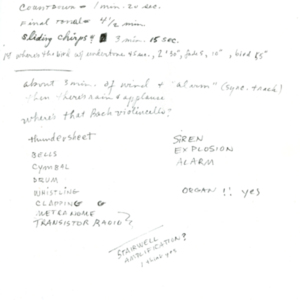 COUNTDOWN = 1 min. 20 sec.
final = 4 1/2 min
sliding chirps 3 min. 15 sec.
where's this bird w/ undertone 2' 30", fade, 10", bird 85"
about 3 min. of wind & "alarm" (sync. track)
then there's rain & applause
where's that Bach violincello?
thundersheet
BELLS
CYMBAL
DRUM
WHISTLING
CLAPPING
METRONOME
TRANSISTOR RADIO?
SIREN
EXPLOSION
ALARM
ORGAN!! yes
STAIRWELL
AMPLIFICATION?
I think yes